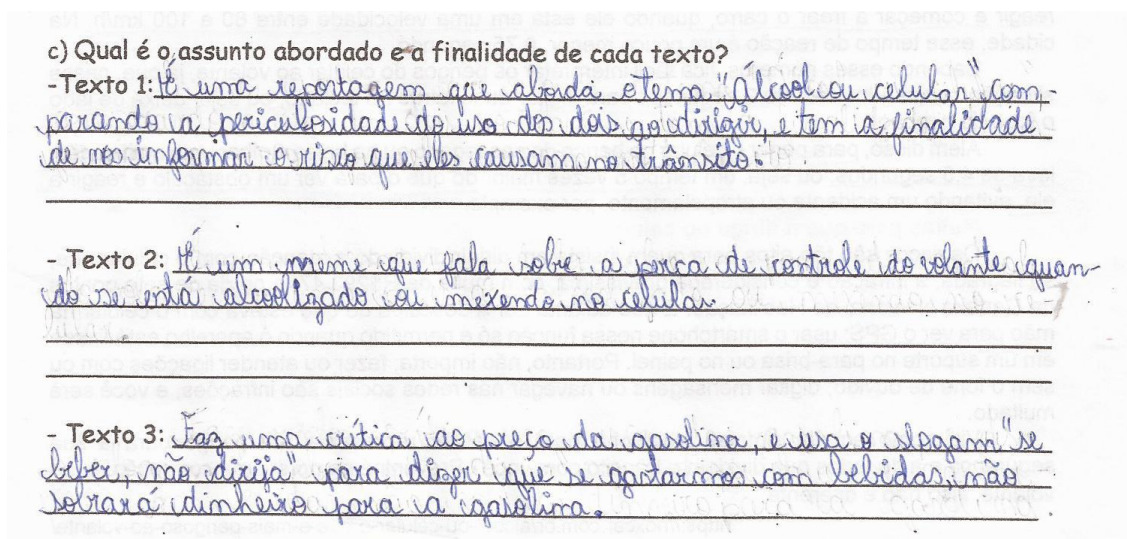 c) Qual é o assunto abordado e a finalidade de cada texto?
- Texto 1: É uma reportagem que aborda o tema "Álcool ou celular", com-
parando a periculosidade do uso dos dois ao dirigir, e tem a finalidade
de nos informar o risco que eles causam no trânsito.
- Texto 2: É um meme que fala sobre a perca de controle do volante quan-
do se está alcoolizado ou mexendo no celular.
- Texto 3: Faz uma crítica ao preço da gasolina, e usa o slogam "se
beber, não dirija" para dizer que se gastarmos com bebidas, não
sobrará dinheiro para a gasolina.